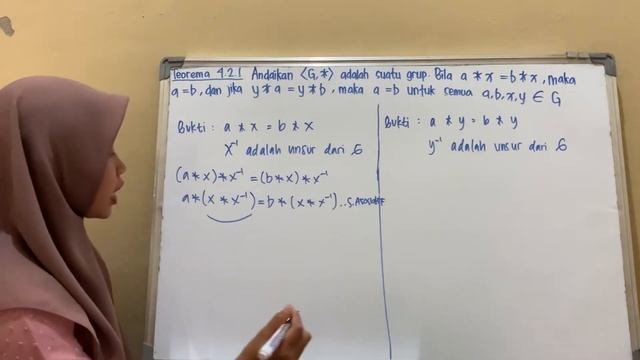 Teorema 4.2.1 Andaikan ⟨G,*⟩ adalah suatu grup. Bila a * x = b * x, maka
a = b, dan jika y * a = y * b, maka a = b untuk semua a, b, x, y ∈ G
Bukti : a * x = b * x
x⁻¹ adalah unsur dari G
(a * x) * x⁻¹ = (b * x) * x⁻¹
a * (x * x⁻¹) = b * (x * x⁻¹) .. S. Asosiatif
Bukti : a * y = b * y
y⁻¹ adalah unsur dari G